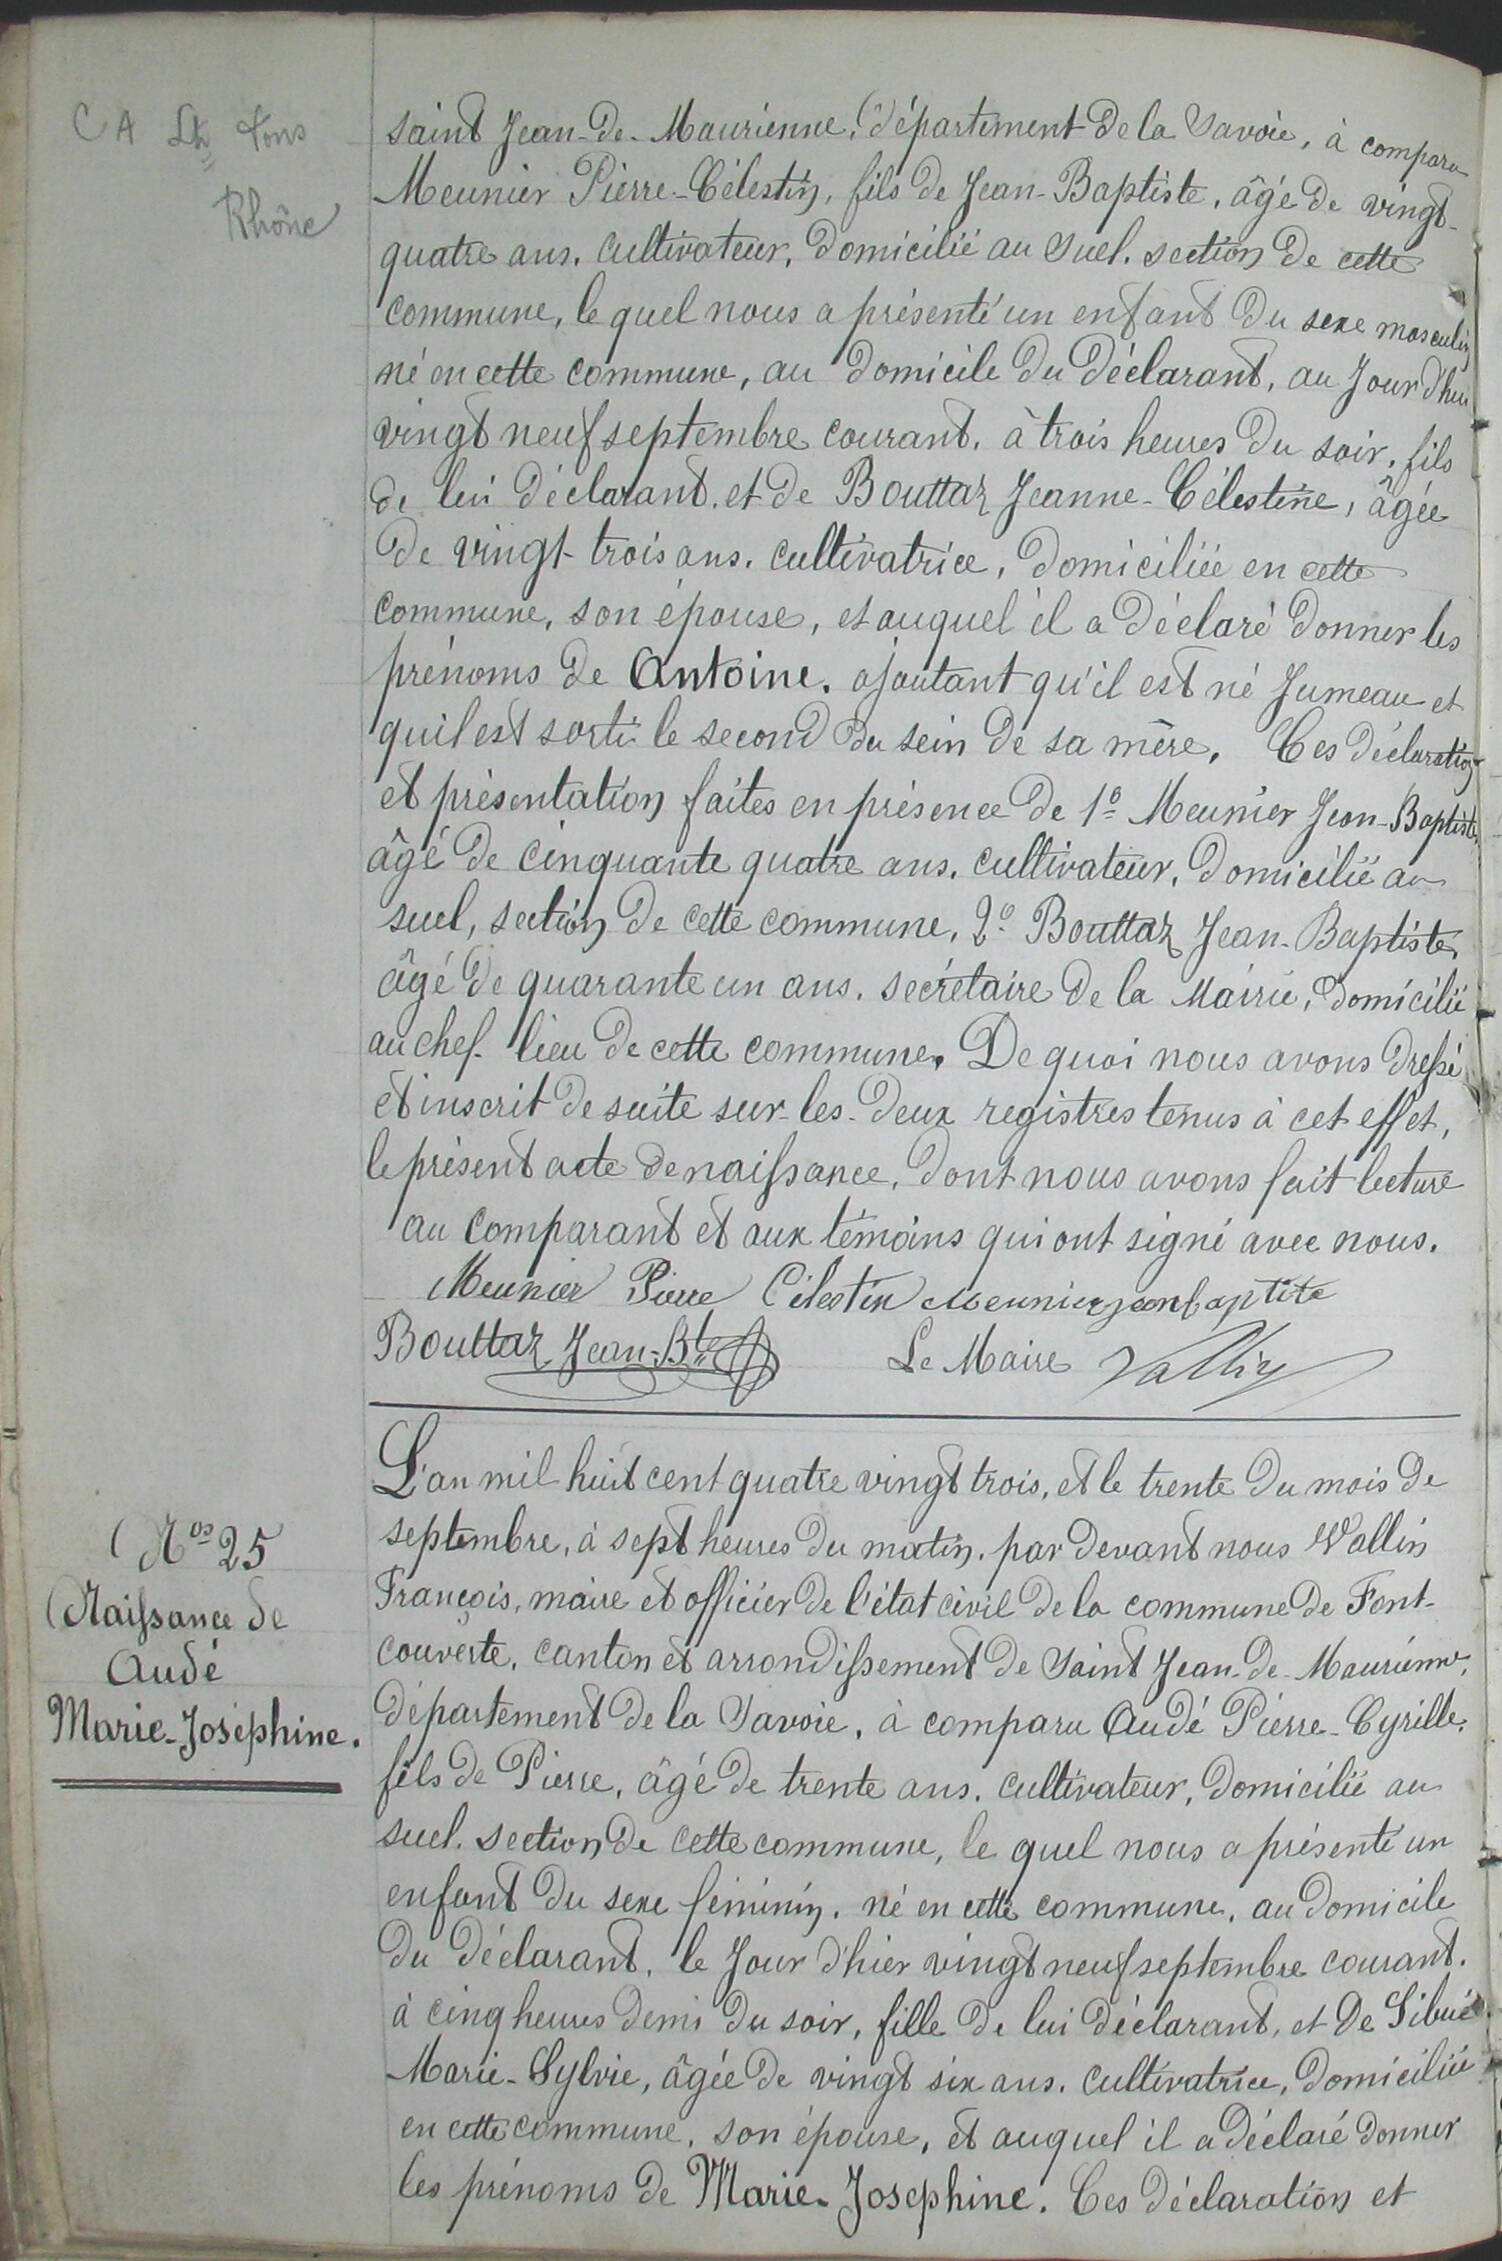 CA St Fons
Rhône
saint Jean-de-Maurienne, département de la Savoie, à comparu
Meunier Pierre-Célestin, fils de Jean-Baptiste, âgé de vingt-
quatre ans, cultivateur, domicilié au Suel, section de cette
commune, le quel nous a présenté un enfant du sexe masculin
né en cette commune, au domicile du déclarant, au Jour d'hui
vingt neuf septembre courant, à trois heures du soir, fils
de lui déclarant, et de Bouttaz Jeanne-Célestine, âgée
de vingt-trois ans, cultivatrice, domiciliée en cette
commune, son épouse, et auquel il a déclaré donner les
prénoms de Antoine, ajoutant qu'il est né Jumeau et
qu'il est sorti le second du sein de sa mère. Ces déclaration
et présentation faites en présence de 1º Meunier Jean-Baptiste,
âgé de cinquante quatre ans, cultivateur, domicilié au
suel, section de cette commune, 2º Bouttaz Jean-Baptiste,
âgé de quarante un ans, secrétaire de la Mairie, domicilié
au chef-lieu de cette commune. De quoi nous avons dressé
et inscrit de suite sur les deux registres tenus à cet effet,
le présent acte de naissance, dont nous avons fait lecture
au comparant et aux témoins qui ont signé avec nous.
Meunier Pierre Célestin Meunier jean baptite
Bouttaz Jean-Bte Le Maire Vallin
L'an mil huit cent quatre vingt trois, et le trente du mois de
septembre, à sept heures du matin, par devant nous Vallin
François, maire et officier de l'état civil de la commune de Font-
couverte, canton et arrondissement de Saint Jean-de-Maurienne,
département de la Savoie, à comparu Audé Pierre-Cyrille,
fils de Pierre, âgé de trente ans, cultivateur, domicilié au
suel, section de cette commune, le quel nous a présenté un
enfant du sexe féminin, né en cette commune, au domicile
du déclarant, le Jour d'hier vingt neuf septembre courant,
à cinq heures demi du soir, fille de lui déclarant, et De Sibué
Marie-Sylvie, âgée de vingt six ans, cultivatrice, domiciliée
en cette commune, son épouse, et auquel il a déclaré donner
les prénoms de Marie-Josephine. Ces déclaration et
Nos 25
Naissance de
Audé
Marie-Joséphine.